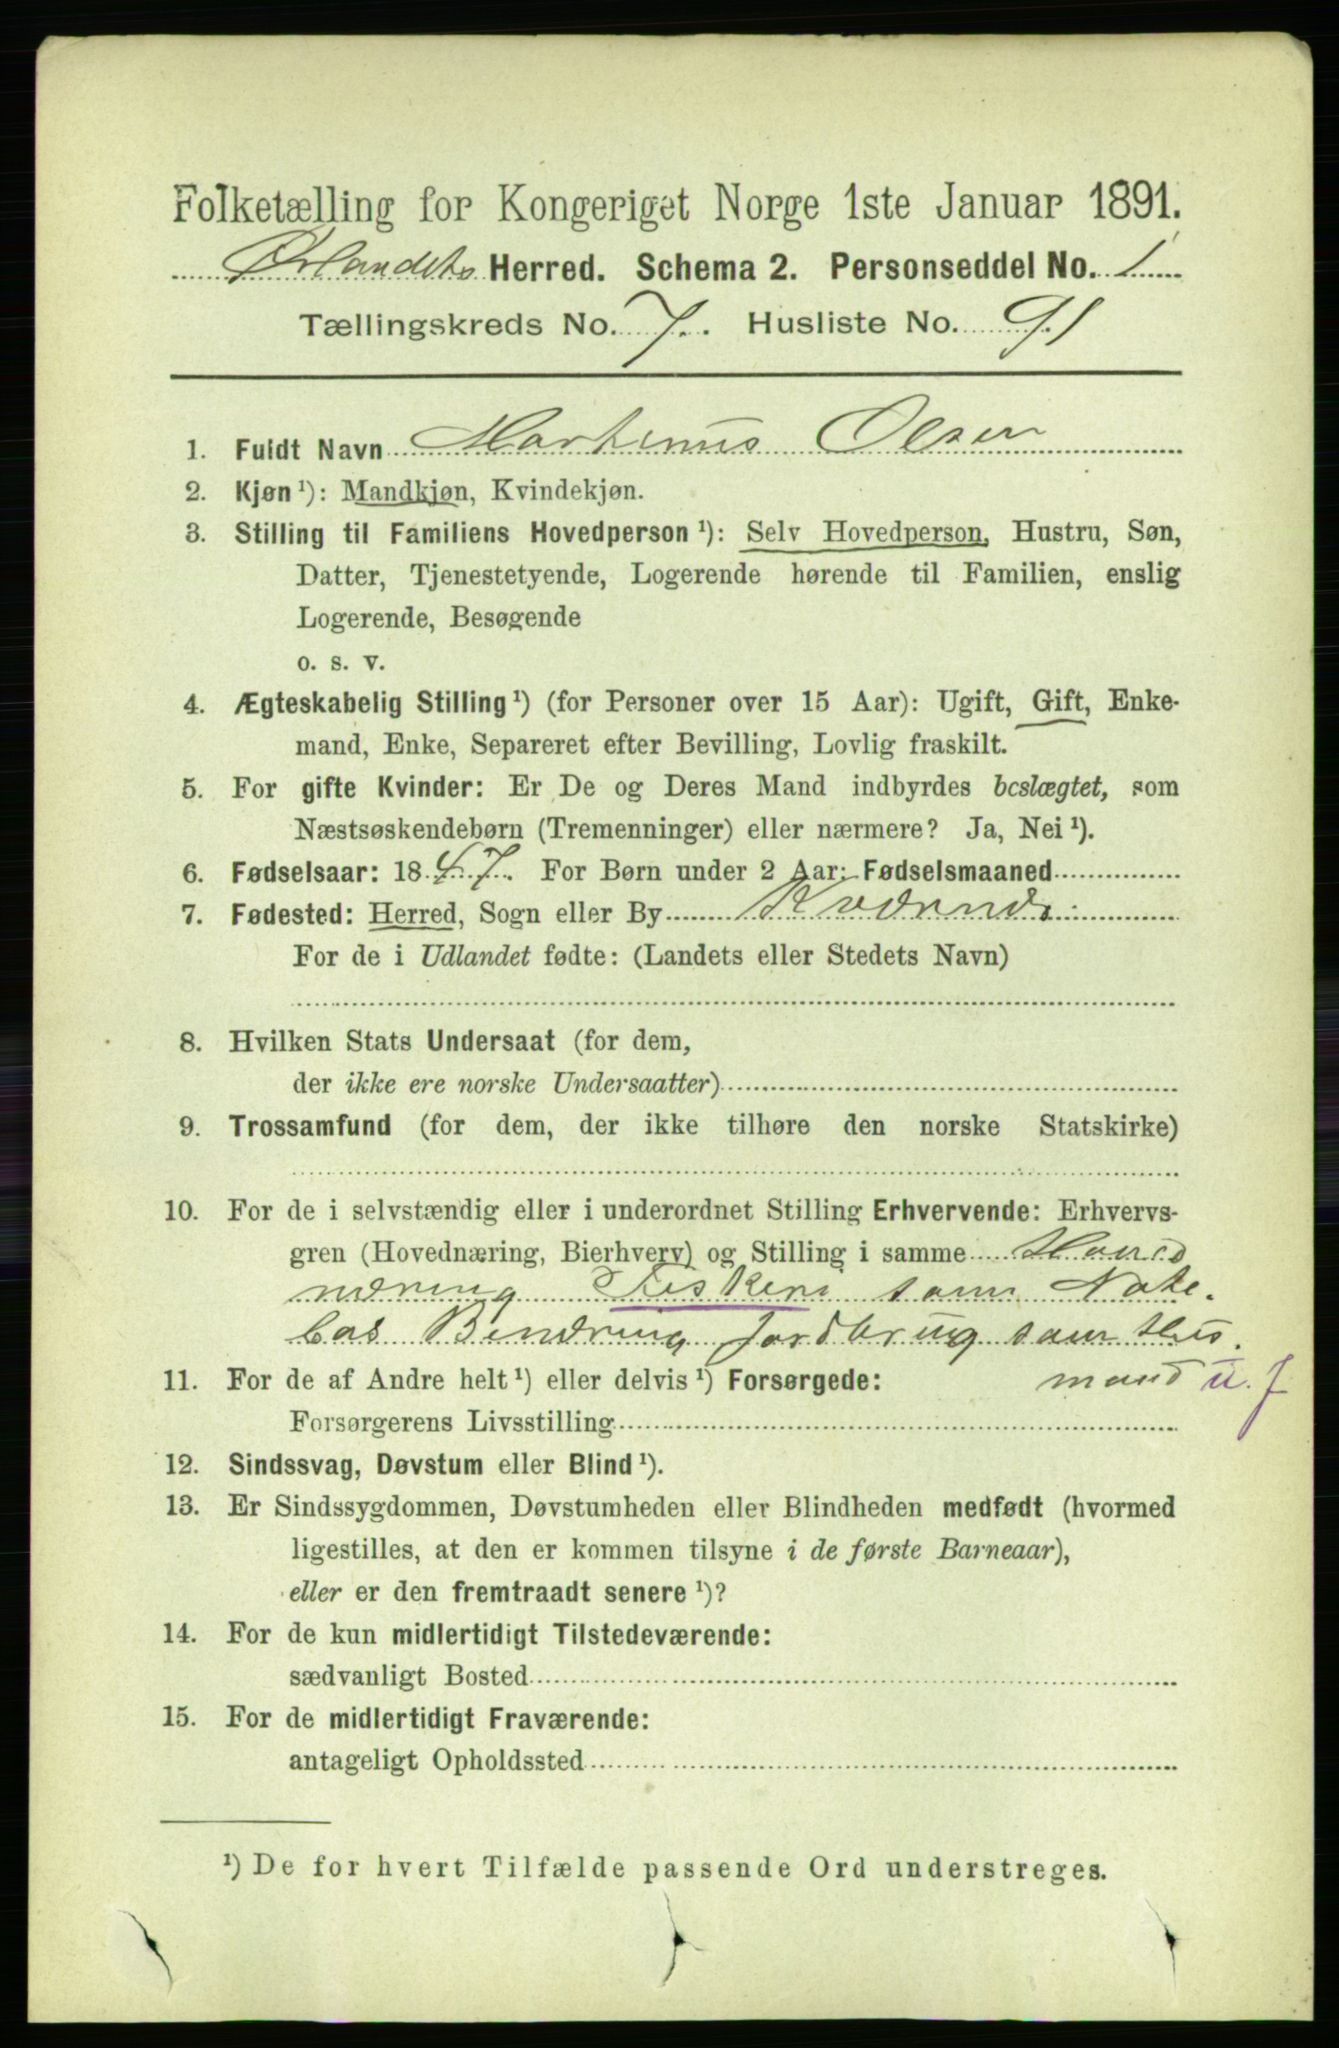 Folketælling for Kongeriget Norge 1ste Januar 1891.
Ørlandets Herred. Schema 2. Personseddel No. 1
Tællingskreds No. 7. Husliste No. 91
1. Fuldt Navn Marthinus Olsen
2. Kjøn¹): Mandkjøn, Kvindekjøn.
3. Stilling til Familiens Hovedperson¹): Selv Hovedperson, Hustru, Søn,
Datter, Tjenestetyende, Logerende hørende til Familien, enslig
Logerende, Besøgende
o. s. v.
4. Ægteskabelig Stilling¹) (for Personer over 15 Aar): Ugift, Gift, Enke-
mand, Enke, Separeret efter Bevilling, Lovlig fraskilt.
5. For gifte Kvinder: Er De og Deres Mand indbyrdes beslægtet, som
Næstsøskendebørn (Tremenninger) eller nærmere? Ja, Nei¹).
6. Fødselsaar: 1847. For Børn under 2 Aar: Fødselsmaaned
7. Fødested: Herred, Sogn eller By
For de i Udlandet fødte: (Landets eller Stedets Navn)
8. Hvilken Stats Undersaat (for dem,
der ikke ere norske Undersaatter)
9. Trossamfund (for dem, der ikke tilhøre den norske Statskirke)
10. For de i selvstændig eller i underordnet Stilling Erhvervende: Erhvervs-
gren (Hovednæring, Bierhverv) og Stilling i samme Hoved
næring Fiskeri som Note.
bas Binæring Jordbrug som Hus.
11. For de af Andre helt¹) eller delvis¹) Forsørgede: mand u. J
Forsørgerens Livsstilling
12. Sindssvag, Døvstum eller Blind¹).
13. Er Sindssygdommen, Døvstumheden eller Blindheden medfødt (hvormed
ligestilles, at den er kommen tilsyne i de første Barneaar),
eller er den fremtraadt senere¹)?
14. For de kun midlertidigt Tilstedeværende:
sædvanligt Bosted
15. For de midlertidigt Fraværende:
antageligt Opholdssted
¹) De for hvert Tilfælde passende Ord understreges.